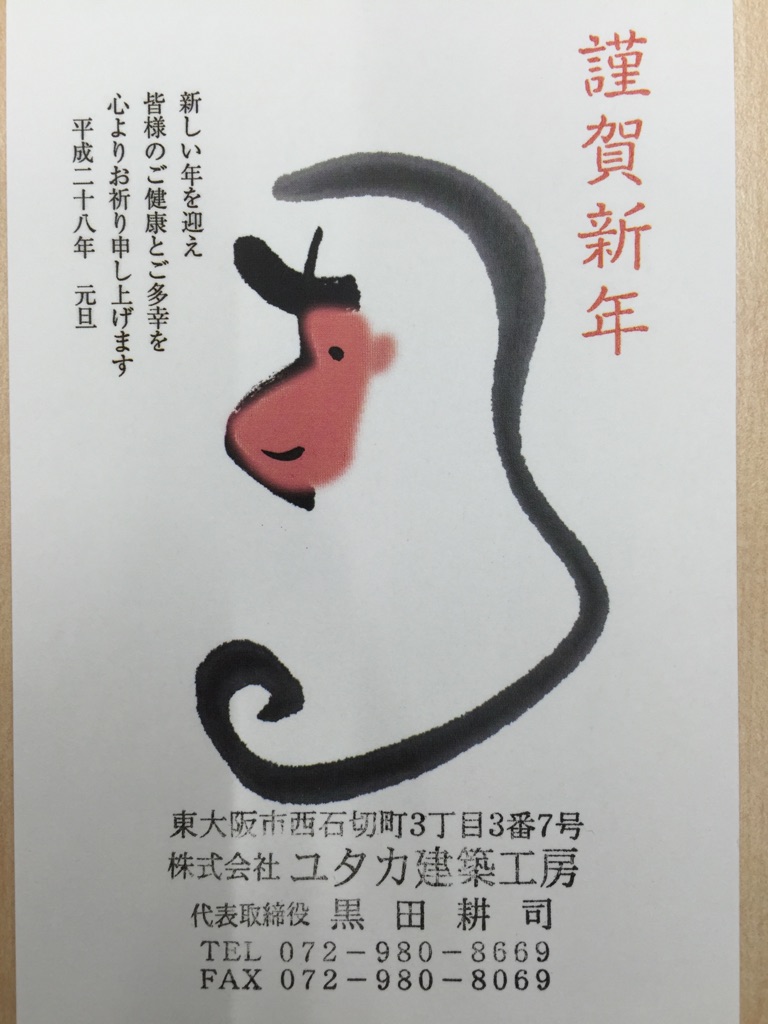 謹賀新年
新しい年を迎え
皆様のご健康とご多幸を
心よりお祈り申し上げます
平成二十八年　元旦
東大阪市西石切町3丁目3番7号
株式会社 ユタカ建築工房
代表取締役 黒田耕司
TEL 072-980-8669
FAX 072-980-8069